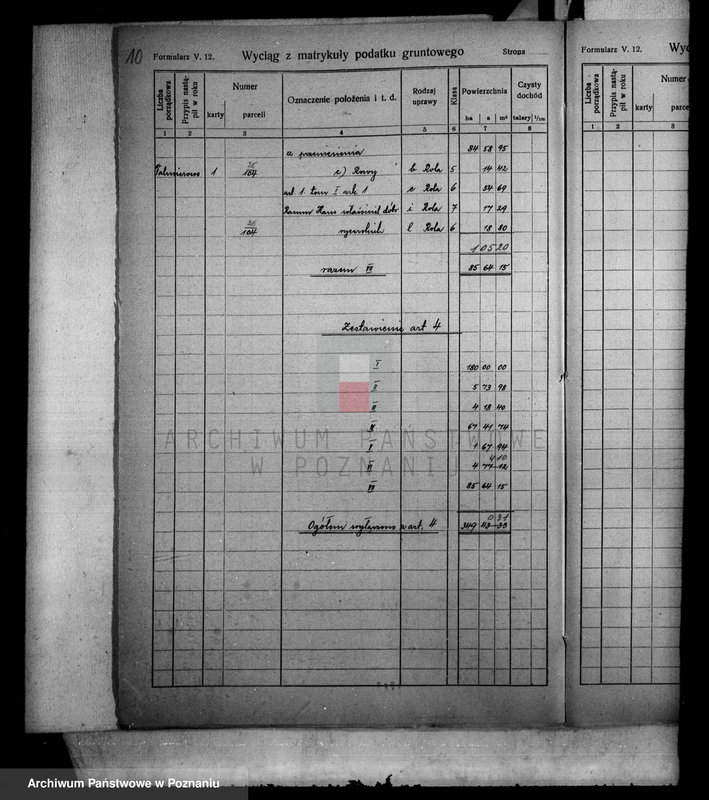 10 Formularz V. 12. Wyciąg z matrykuły podatku gruntowego Strona
Liczba porządkowa
Przypis nastąpił w roku
Numer
karty parceli
Oznaczenie położenia i t. d.
Rodzaj uprawy
Klasa
Powierzchnia
ha a m²
Czysty dochód
talary 1/100
1 2 3 4 5 6 7 8
z przeniesienia 84 58 95
1 104 c) Rowy b Rola 5 14 42
art 1 tom I ark 1 e Rola 6 54 69
Hans właściciel dóbr i Rola 7 17 29
104 rycerskich l Rola 6 18 80
1 05 20
razem VII 85 64 15
Zestawienie art 4
I 180 00 00
II 5 73 98
III 4 18 40
IV 67 41 74
V 1 67 94
4 10
VI 4 77 12
VII 85 64 15
0 31
Ogółem wyłączono z art. 4 349 43 33
ARCHIWUM PAŃSTWOWE
W POZNANIU
Formularz V. 12. Wyc
Liczba porządkowa
Przypis nastąpił w roku
Numer
karty parceli
1 2 3
Archiwum Państwowe w Poznaniu